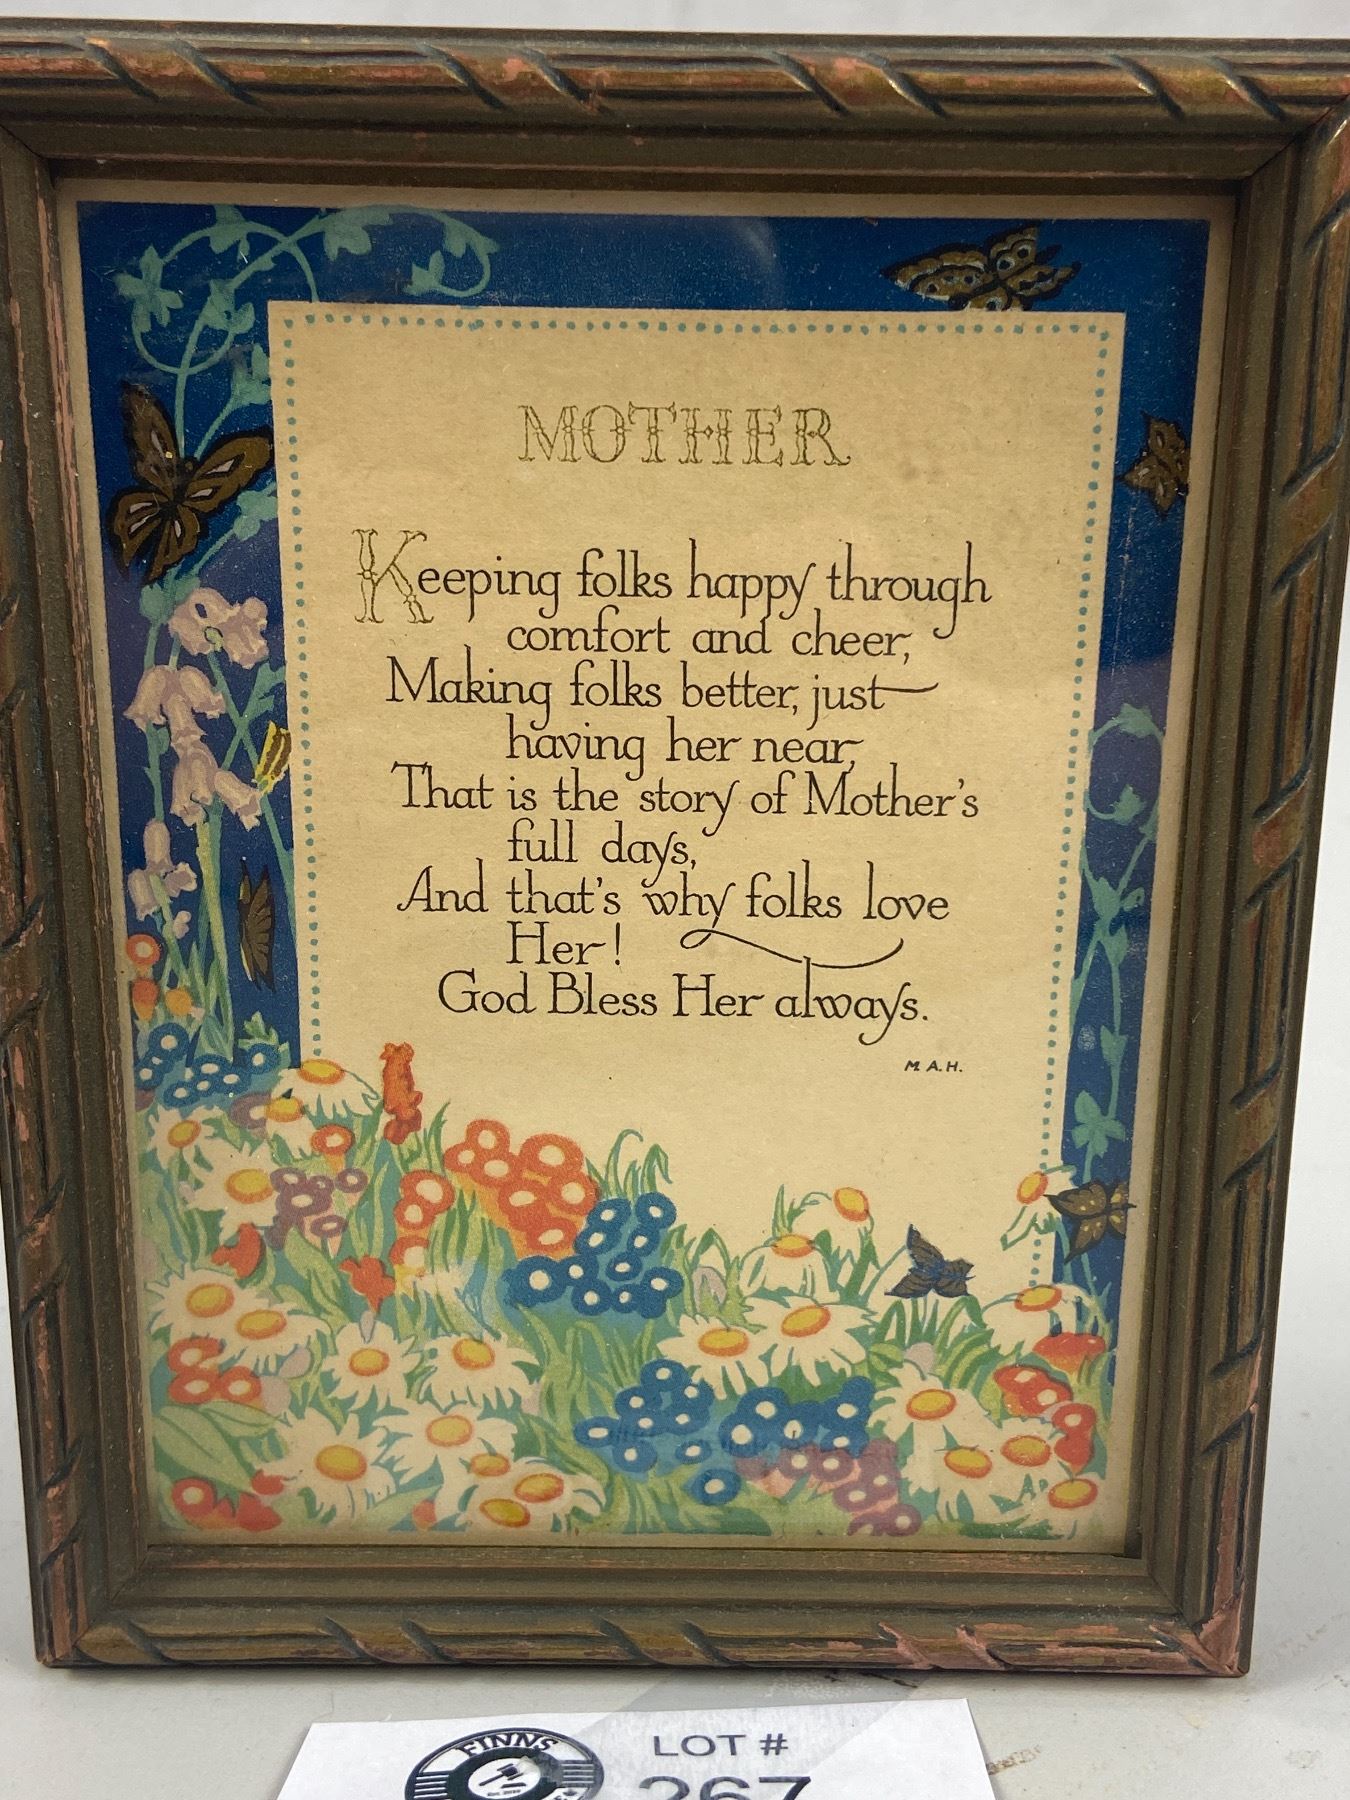 MOTHER
Keeping folks happy through
comfort and cheer,
Making folks better, just
having her near,
That is the story of Mother's
full days,
And that's why folks love
Her!
God Bless Her always.
M. A. H.
FINNS
LOT #
267